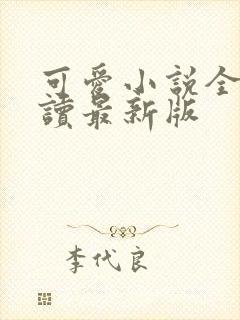 可愛小說全
讀最新版
李代良